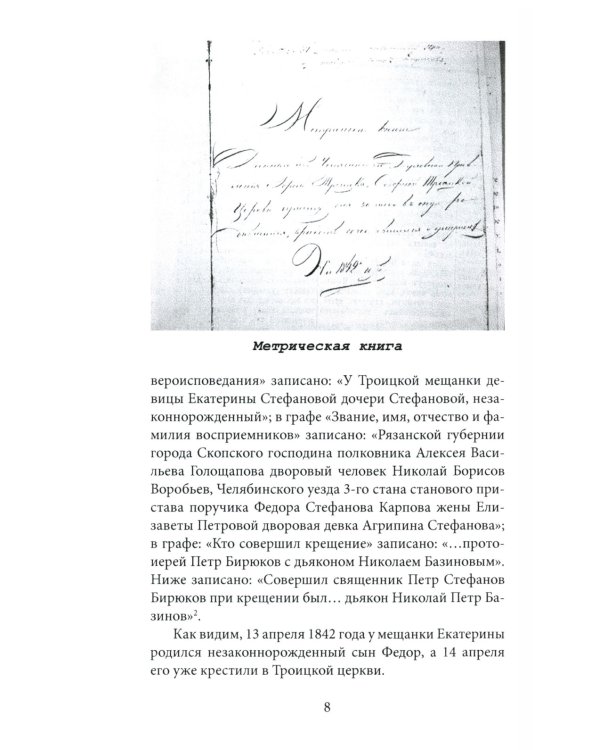 Метрическая книга
На 1842 й г.
Метрическая книга
вероисповедания» записано: «У Троицкой мещанки де-
вицы Екатерины Стефановой дочери Стефановой, неза-
коннорожденный»; в графе «Звание, имя, отчество и фа-
милия восприемников» записано: «Рязанской губернии
города Скопского господина полковника Алексея Васи-
льева Голощапова дворовый человек Николай Борисов
Воробьев, Челябинского уезда 3-го стана станового при-
става поручика Федора Стефанова Карпова жены Ели-
заветы Петровой дворовая девка Агрипина Стефанова»;
в графе: «Кто совершил крещение» записано: «…прото-
иерей Петр Бирюков с дьяконом Николаем Базиновым».
Ниже записано: «Совершил священник Петр Стефанов
Бирюков при крещении был… дьякон Николай Петр Ба-
зинов»².
Как видим, 13 апреля 1842 года у мещанки Екатерины
родился незаконнорожденный сын Федор, а 14 апреля
его уже крестили в Троицкой церкви.
8